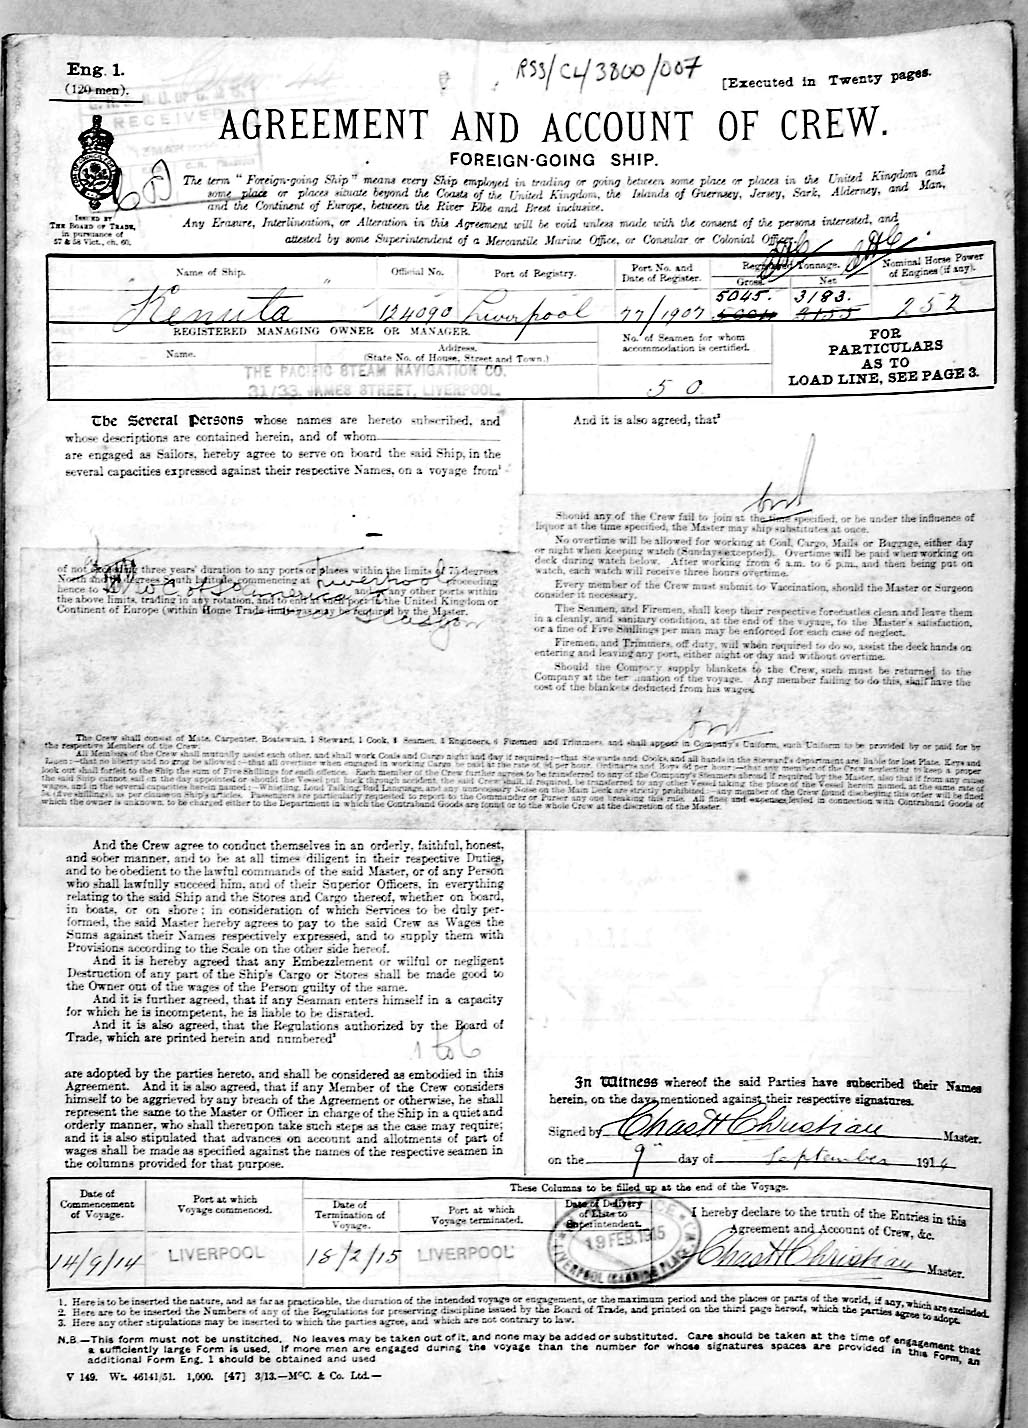 RSS/CL/3800/007
Eng. 1.
(120 men).
[Executed in Twenty pages.
RECEIVED
AGREEMENT AND ACCOUNT OF CREW.
FOREIGN-GOING SHIP.
The term "Foreign-going Ship" means every Ship employed in trading or going between some place or places in the United Kingdom and
some place or places situate beyond the Coasts of the United Kingdom, the Islands of Guernsey, Jersey, Sark, Alderney, and Man,
and the Continent of Europe, between the River Elbe and Brest inclusive.
ISSUED BY
THE BOARD OF TRADE,
in pursuance of
57 & 58 Vict., ch. 60.
Any Erasure, Interlineation, or Alteration in this Agreement will be void unless made with the consent of the persons interested, and
attested by some Superintendent of a Mercantile Marine Office, or Consular or Colonial Officer.
Name of Ship.
Official No.
Port of Registry.
Port No. and
Date of Register.
Registered Tonnage.
Gross.
Net
Nominal Horse Power
of Engines (if any).
Kenuta
124090
Liverpool
77/1907
5045. 3183.
5004 3155
252
REGISTERED MANAGING OWNER OR MANAGER.
Name.
Address.
(State No. of House, Street and Town.)
No. of Seamen for whom
accommodation is certified.
FOR
PARTICULARS
AS TO
LOAD LINE, SEE PAGE 3.
THE PACIFIC STEAM NAVIGATION CO.
31/33, JAMES STREET, LIVERPOOL.
50
The Several Persons whose names are hereto subscribed, and
whose descriptions are contained herein, and of whom
are engaged as Sailors, hereby agree to serve on board the said Ship, in the
several capacities expressed against their respective Names, on a voyage from¹
of not exceeding three years' duration to any ports or places within the limits of 75 degrees
North and degrees South latitude, commencing at Liverpool proceeding
hence to of S America and any other ports within
the above limits, trading in any rotation, and to end at such port in the United Kingdom or
Continent of Europe (within Home Trade limits) as may be required by the Master.
Glasgow
And it is also agreed, that³
Should any of the Crew fail to join at the time specified, or be under the influence of
liquor at the time specified, the Master may ship substitutes at once.
No overtime will be allowed for working at Coal, Cargo, Mails or Baggage, either day
or night when keeping watch (Sundays excepted). Overtime will be paid when working on
deck during watch below. After working from 6 a.m. to 6 p.m., and then being put on
watch, each watch will receive three hours overtime.
Every member of the Crew must submit to Vaccination, should the Master or Surgeon
consider it necessary.
The Seamen, and Firemen, shall keep their respective forecastles clean and leave them
in a cleanly, and sanitary condition, at the end of the voyage, to the Master's satisfaction,
or a fine of Five Shillings per man may be enforced for each case of neglect.
Firemen, and Trimmers, off duty, will when required to do so, assist the deck hands on
entering and leaving any port, either night or day and without overtime.
Should the Company supply blankets to the Crew, such must be returned to the
Company at the termination of the voyage. Any member failing to do this, shall have the
cost of the blankets deducted from his wages.
The Crew shall consist of Mate, Carpenter, Boatswain, 1 Steward, 1 Cook, 8 Seamen, 3 Engineers, 6 Firemen and Trimmers, and shall appear in Company's Uniform, such Uniform to be provided by or paid for by
the respective Members of the Crew.
All Members of the Crew shall mutually assist each other, and shall work Coals and Cargo night and day if required:—that Stewards and Cooks, and all hands in the Steward's department are liable for lost Plate, Keys and
Linen:—that no liberty and no grog be allowed:—that all overtime when engaged in working Cargo be paid at the rate of 9d per hour, Ordinaries and Boys 6d per hour:—that any member of the Crew neglecting to keep a proper
look out shall forfeit to the Ship the sum of Five Shillings for each offence. Each member of the Crew further agrees to be transferred to any of the Company's Steamers abroad if required by the Master, also that if from any cause
the said Ship cannot sail on the day appointed or should the Vessel put back through accident, the said Crew shall, if required, be transferred to any other Vessel taking the place of the Vessel herein named, at the same rate of
wages, and in the several capacities herein named:—Whistling, Loud Talking, Bad Language, and any unnecessary Noise on the Main Deck are strictly prohibited:—any member of the Crew found disobeying this order will be fined
5s. (five shillings), as per clause on Ship's articles. Passengers are particularly requested to report to the Commander or Purser any one breaking this rule. All fines and expenses levied in connection with Contraband Goods of
which the owner is unknown, to be charged either to the Department in which the Contraband Goods are found or to the whole Crew at the discretion of the Master.
And the Crew agree to conduct themselves in an orderly, faithful, honest,
and sober manner, and to be at all times diligent in their respective Duties,
and to be obedient to the lawful commands of the said Master, or of any Person
who shall lawfully succeed him, and of their Superior Officers, in everything
relating to the said Ship and the Stores and Cargo thereof, whether on board,
in boats, or on shore: in consideration of which Services to be duly per-
formed, the said Master hereby agrees to pay to the said Crew as Wages the
Sums against their Names respectively expressed, and to supply them with
Provisions according to the Scale on the other side hereof.
And it is hereby agreed that any Embezzlement or wilful or negligent
Destruction of any part of the Ship's Cargo or Stores shall be made good to
the Owner out of the wages of the Person guilty of the same.
And it is further agreed, that if any Seaman enters himself in a capacity
for which he is incompetent, he is liable to be disrated.
And it is also agreed, that the Regulations authorized by the Board of
Trade, which are printed herein and numbered²
1 to 6
are adopted by the parties hereto, and shall be considered as embodied in this
Agreement. And it is also agreed, that if any Member of the Crew considers
himself to be aggrieved by any breach of the Agreement or otherwise, he shall
represent the same to the Master or Officer in charge of the Ship in a quiet and
orderly manner, who shall thereupon take such steps as the case may require;
and it is also stipulated that advances on account and allotments of part of
wages shall be made as specified against the names of the respective seamen in
the columns provided for that purpose.
In Witness whereof the said Parties have subscribed their Names
herein, on the days mentioned against their respective signatures.
Signed by Chas H Christian Master.
on the 9th day of September 1914
These Columns to be filled up at the end of the Voyage.
Date of
Commencement
of Voyage.
Port at which
Voyage commenced.
Date of
Termination of
Voyage.
Port at which
Voyage terminated.
Date of Delivery
of Lists to
Superintendent.
I hereby declare to the truth of the Entries in this
Agreement and Account of Crew, &c.
14/9/14
LIVERPOOL
18/2/15
LIVERPOOL
19 FEB. 1915
LIVERPOOL (CANNING PLACE)
Chas H Christian Master.
1. Here is to be inserted the nature, and as far as practicable, the duration of the intended voyage or engagement, or the maximum period and the places or parts of the world, if any, which are excluded.
2. Here are to be inserted the Numbers of any of the Regulations for preserving discipline issued by the Board of Trade, and printed on the third page hereof, which the parties agree to adopt.
3. Here any other stipulations may be inserted to which the parties agree, and which are not contrary to law.
N.B.—This form must not be unstitched. No leaves may be taken out of it, and none may be added or substituted. Care should be taken at the time of engagement that
a sufficiently large Form is used. If more men are engaged during the voyage than the number for whose signatures spaces are provided in this Form, an
additional Form Eng. 1 should be obtained and used
V 149. Wt. 46141/51. 1,000. [47] 3/13.—McC. & Co. Ltd.—